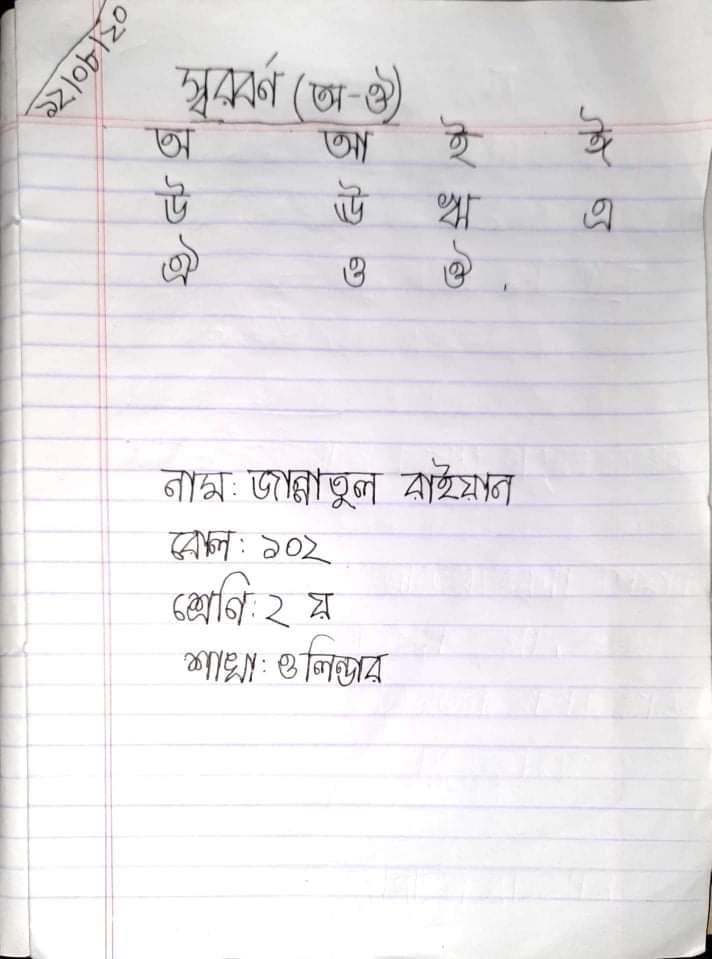 স্বরবর্ণ (অ-ঔ)
অ আ ই ঈ
উ ঊ ঋ এ
ঐ ও ঔ .
নাম: জান্নাতুল রাইয়ান
রোল: ১০২
শ্রেণি: ২ য়
শাখা: ওলিন্ডার